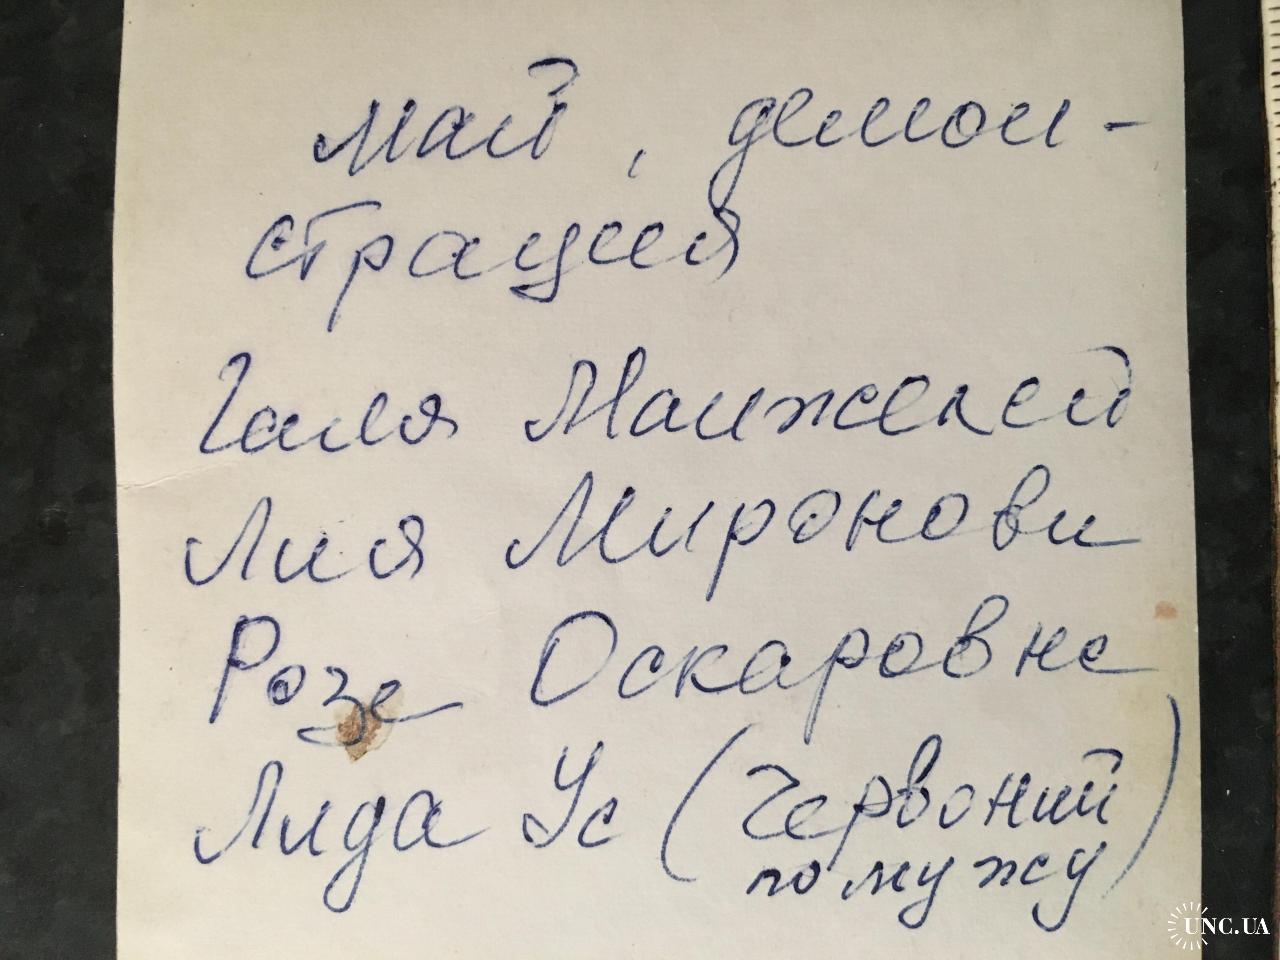 май, демон-
страция
Галя Манжелей
Лия Миронови
Роза Оскаровна
Лида Ус (Червоний
по мужу)
UNC.UA